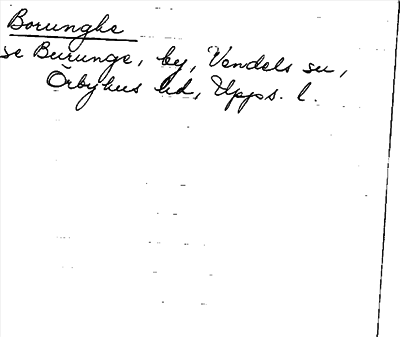 Borunghe
se Burunge, by, Vendels sn,
Örbyhus hd, Upps. l.